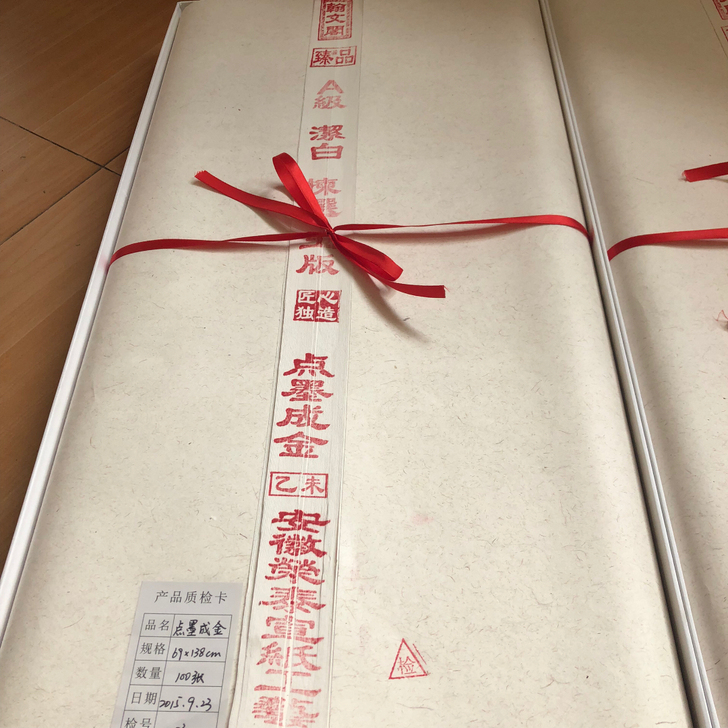 翰文閣
臻品
A級
潔白
版
匠心
独造
点墨成金
乙未
安徽榮泰宣紙工藝
检
产品质检卡
品名 点墨成金
规格 69×138cm
数量 100张
日期 2015.9.23
检号